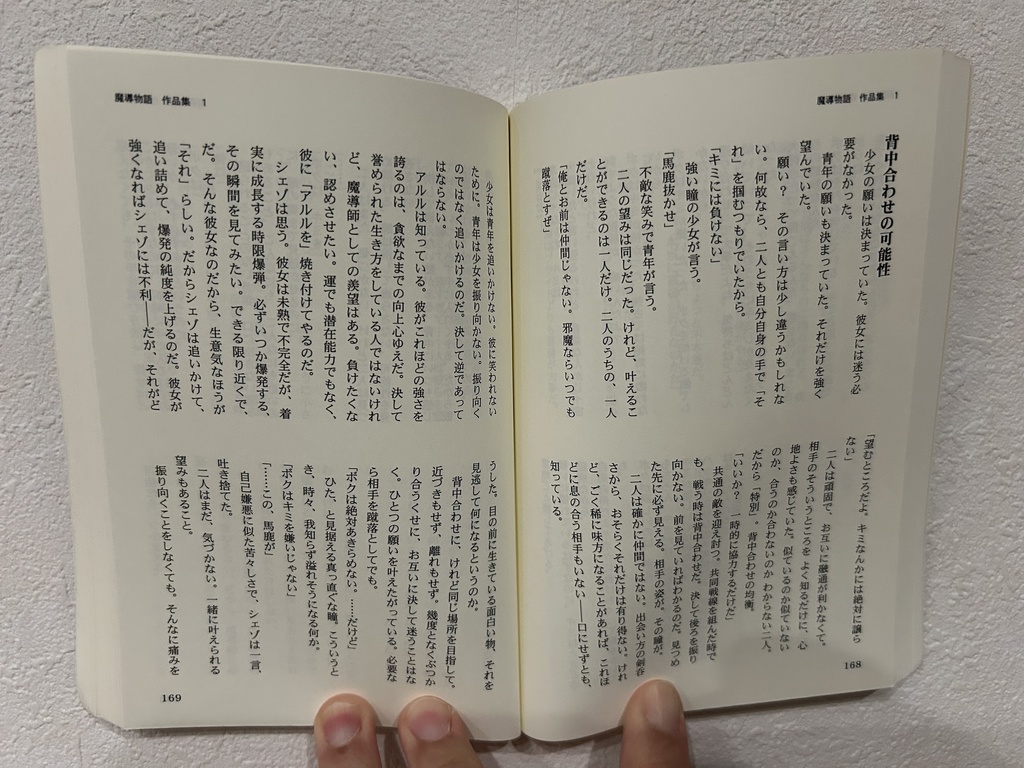 魔導物語　作品集　1
背中合わせの可能性
少女の願いは決まっていた。彼女には迷う必
要がなかった。
青年の願いも決まっていた。それだけを強く
望んでいた。
願い？　その言い方は少し違うかもしれな
い。何故なら、二人とも自分自身の手で「そ
れ」を掴むつもりでいたから。
「キミには負けない」
強い瞳の少女が言う。
「馬鹿抜かせ」
不敵な笑みで青年が言う。
二人の望みは同じだった。けれど、叶えるこ
とができるのは一人だけ。二人のうちの、一人
だけだ。
「俺とお前は仲間じゃない。邪魔ならいつでも
蹴落とすぜ」
「望むところだよ。キミなんかには絶対に譲ら
ない」
二人は頑固で、お互いに融通が利かなくて。
相手のそういうところを よく知るだけに、心
地よさも感じていた。似ているのか似ていない
のか、合うのか合わないのか わからない二人。
だから「特別」。背中合わせの均衡。
「いいか？　一時的に協力するだけだ」
共通の敵を迎え討つ。共同戦線を組んだ時で
も、戦う時は背中合わせだ。決して後ろを振り
向かない。前を見ていればわかるのだ。見つめ
た先に必ず見える。相手の姿が、その瞳が。
二人は確かに仲間ではない。出会い方の剣呑
さから、おそらくそれだけは有り得ない。けれ
ど、ごく稀に味方になることがあれば、これほ
どに息の合う相手もいない――口にせずとも、
知っている。
168
魔導物語　作品集　1
少女は青年を追いかけない。彼に笑われない
ために。青年は少女を振り向かない。振り向く
のではなく追いかけるのだ。決して逆であって
はならない。
アルルは知っている。彼がこれほどの強さを
誇るのは、貪欲なまでの向上心ゆえだ。決して
誉められた生き方をしている人ではないけれ
ど、魔導師としての羨望はある。負けたくな
い、認めさせたい。運でも潜在能力でもなく、
彼に「アルルを」焼き付けてやるのだ。
シェゾは思う。彼女は未熟で不完全だが、着
実に成長する時限爆弾。必ずいつか爆発する、
その瞬間を見てみたい。できる限り近くで、
だ。そんな彼女なのだから、生意気なほうが
「それ」らしい。だからシェゾは追いかけて、
追い詰めて、爆発の純度を上げるのだ。彼女が
強くなればシェゾには不利――だが、それがど
うした。目の前に生きている面白い物、それを
見逃して何になるというのか。
背中合わせに、けれど同じ場所を目指して。
近づきもせず、離れもせず。幾度となくぶつか
り合うくせに、お互いに決して迷うことはな
く。ひとつの願いを叶えたがっている。必要な
ら相手を蹴落としてでも。
「ボクは絶対あきらめない。……だけど」
ひた、と見据える真っ直ぐな瞳。こういうと
き、時々、我知らず溢れそうになる何か。
「ボクはキミを嫌いじゃない」
「……この、馬鹿が」
自己嫌悪に似た苦々しさで、シェゾは一言、
吐き捨てた。
二人はまだ、気づかない。一緒に叶えられる
望みもあること。
振り向くことをしなくても。そんなに痛みを
169